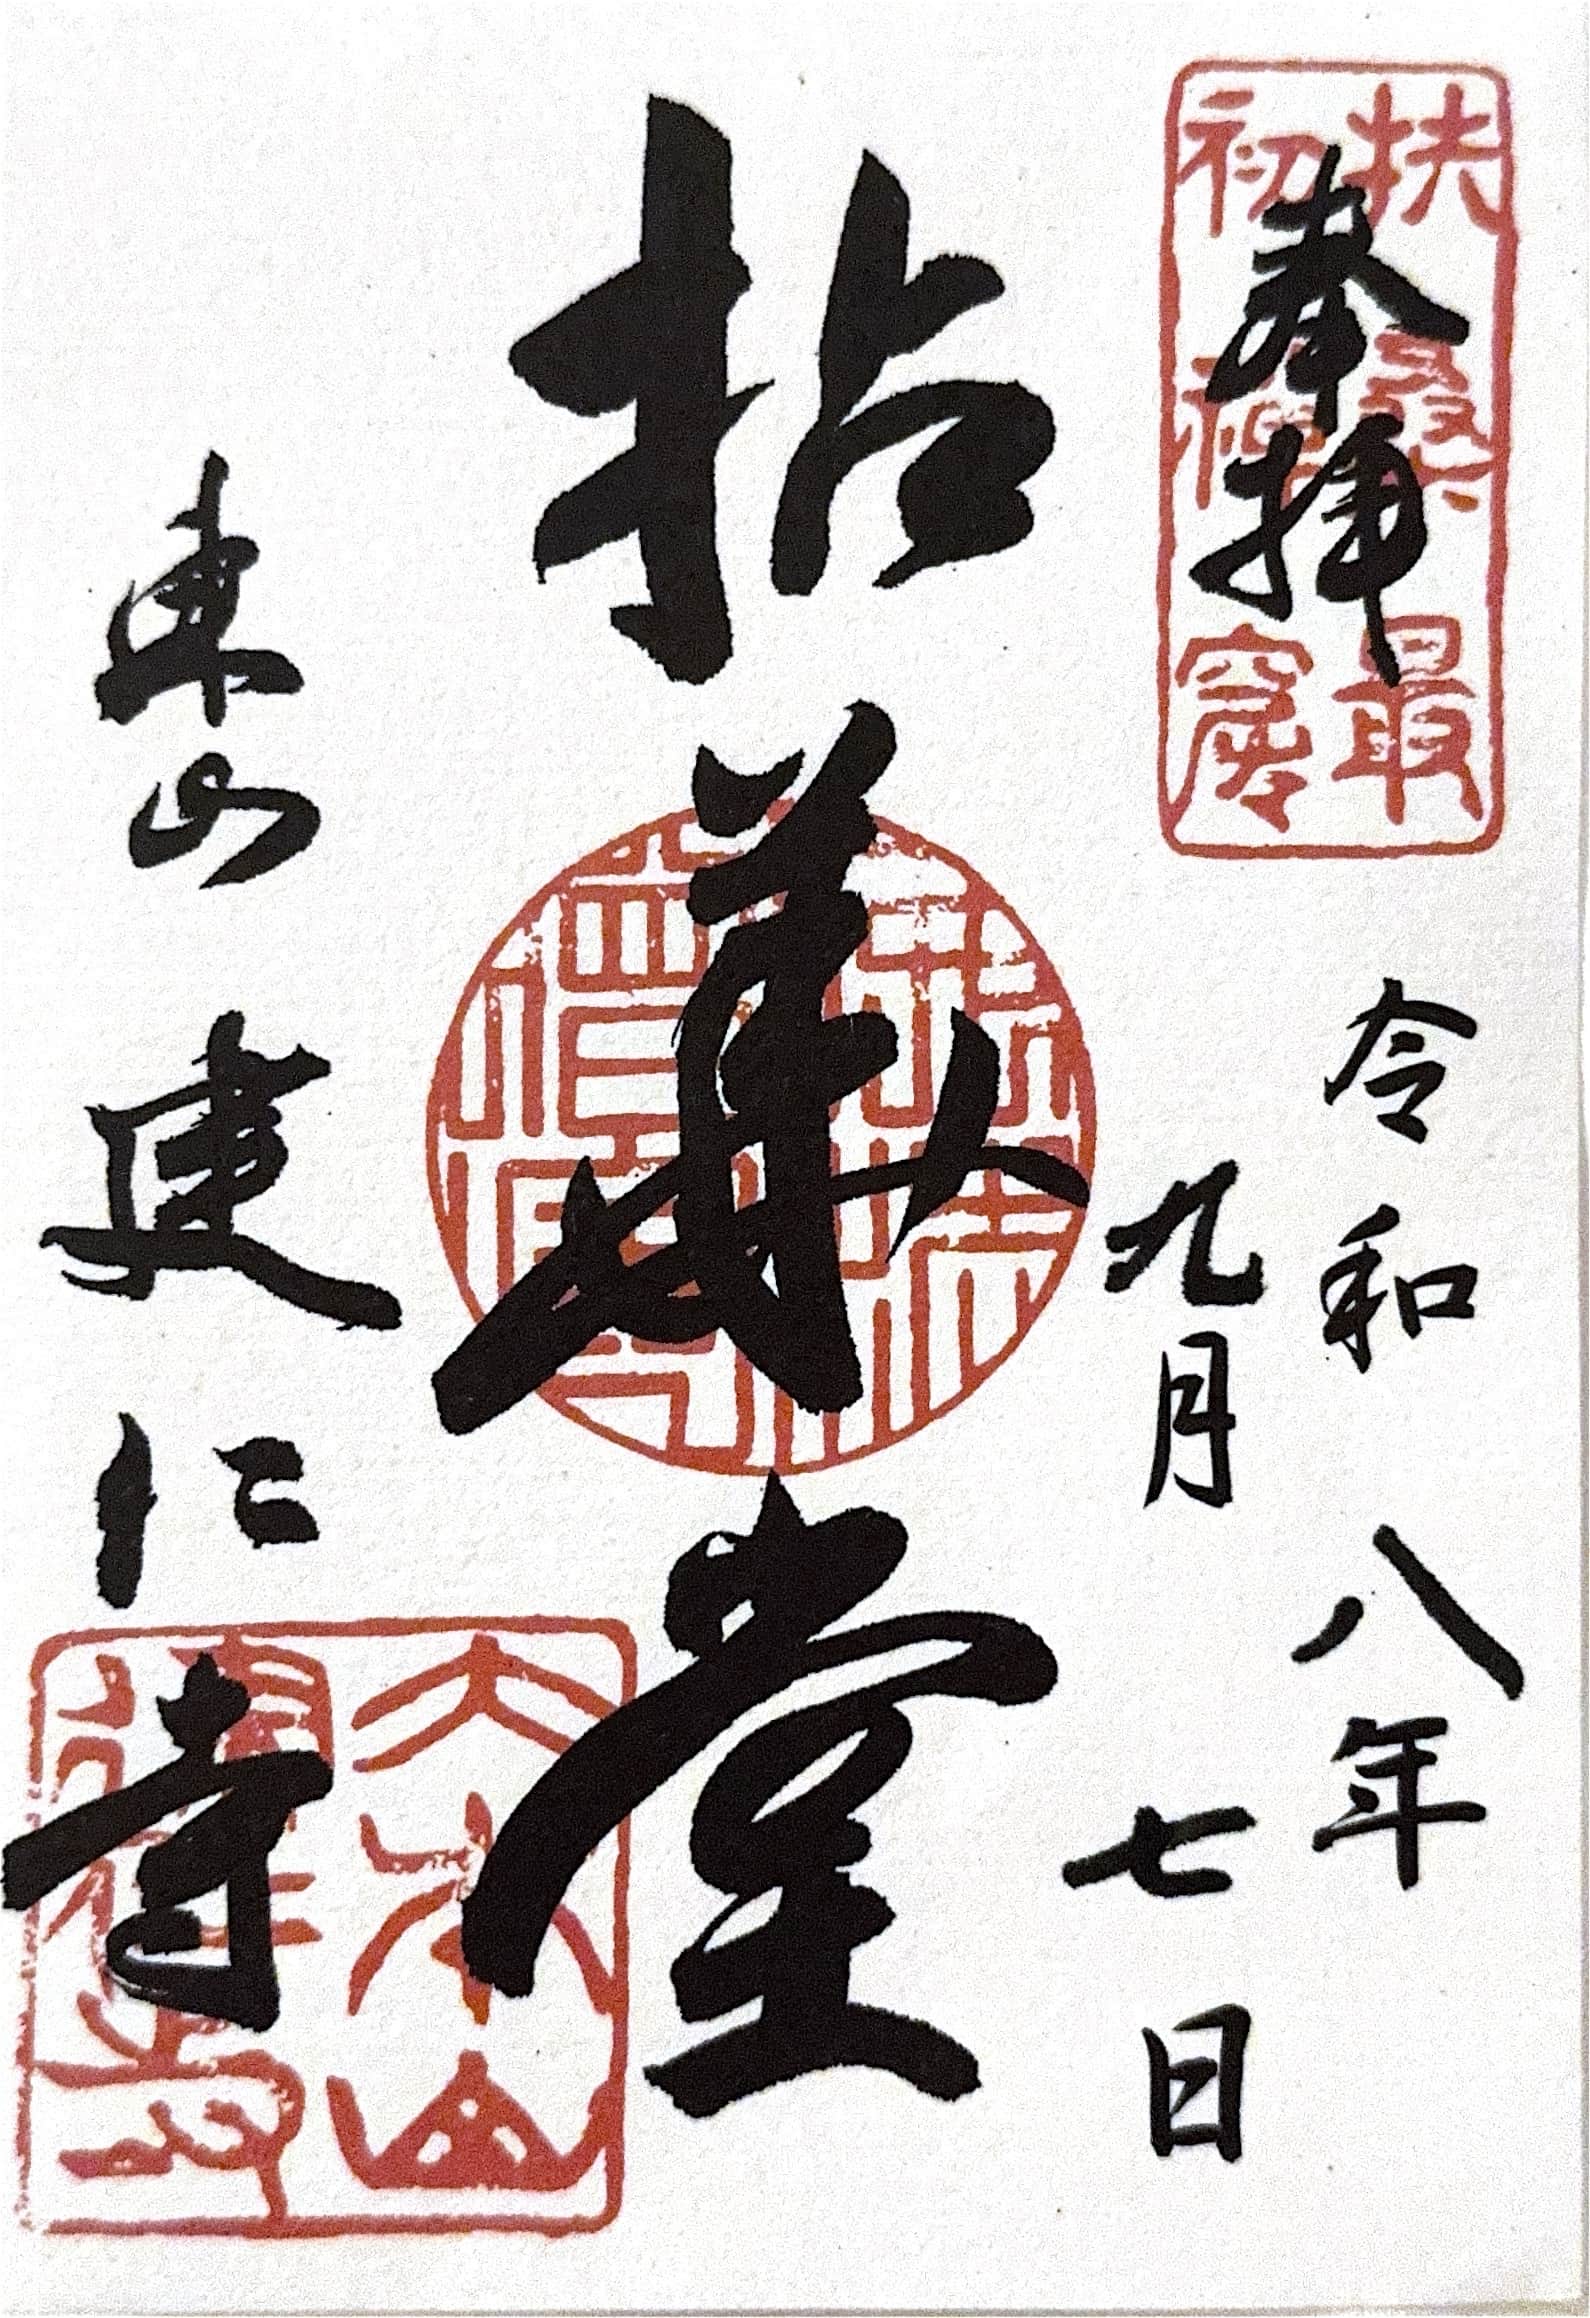 奉拝
扶桑最
初禅窟
令和八年
九月七日
拈華堂
東山建仁寺
大本山
建仁寺